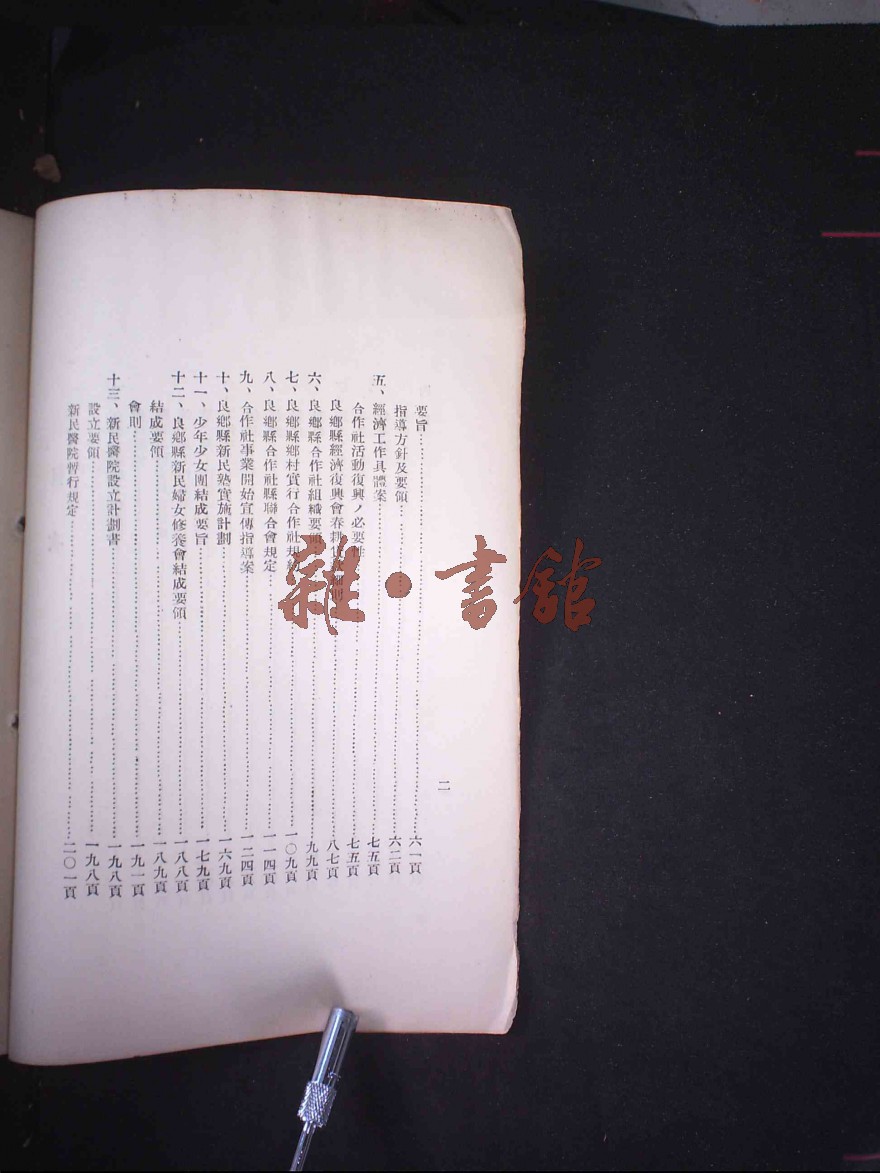 要旨……六一頁
指導方針及要領……六二頁
五、經濟工作具體案……七五頁
合作社活動復興ノ必要性……七五頁
良鄉縣經濟復興會春耕……八七頁
六、良鄉縣合作社組織要領……九九頁
七、良鄉縣鄉村實行合作社規……一〇九頁
八、良鄉縣合作社縣聯合會規定……一一四頁
九、合作社事業開始宣傳指導案……一二四頁
十、良鄉縣新民塾實施計劃……一六九頁
十一、少年少女團結成要旨……一七九頁
十二、良鄉縣新民婦女修養會結成要領……一八八頁
結成要領……一八九頁
會則……一九一頁
十三、新民醫院設立計劃書……一九八頁
設立要領……一九八頁
新民醫院暫行規定……二〇一頁
二
雜·書館